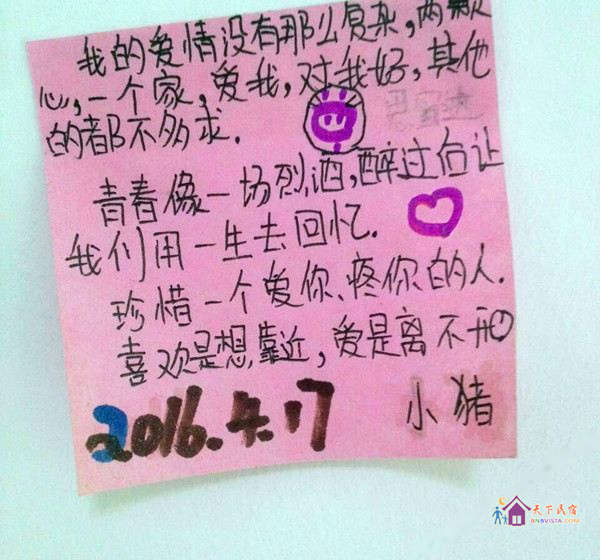 我的爱情没有那么复杂,两颗
心,一个家,爱我,对我好,其他
的都不多求.
青春像一场烈酒,醉过后让
我们用一生去回忆.
珍惜一个爱你、疼你的人.
喜欢是想靠近,爱是离不开
2016.4.17
小猪
天下民宿
BNBVISTA.COM